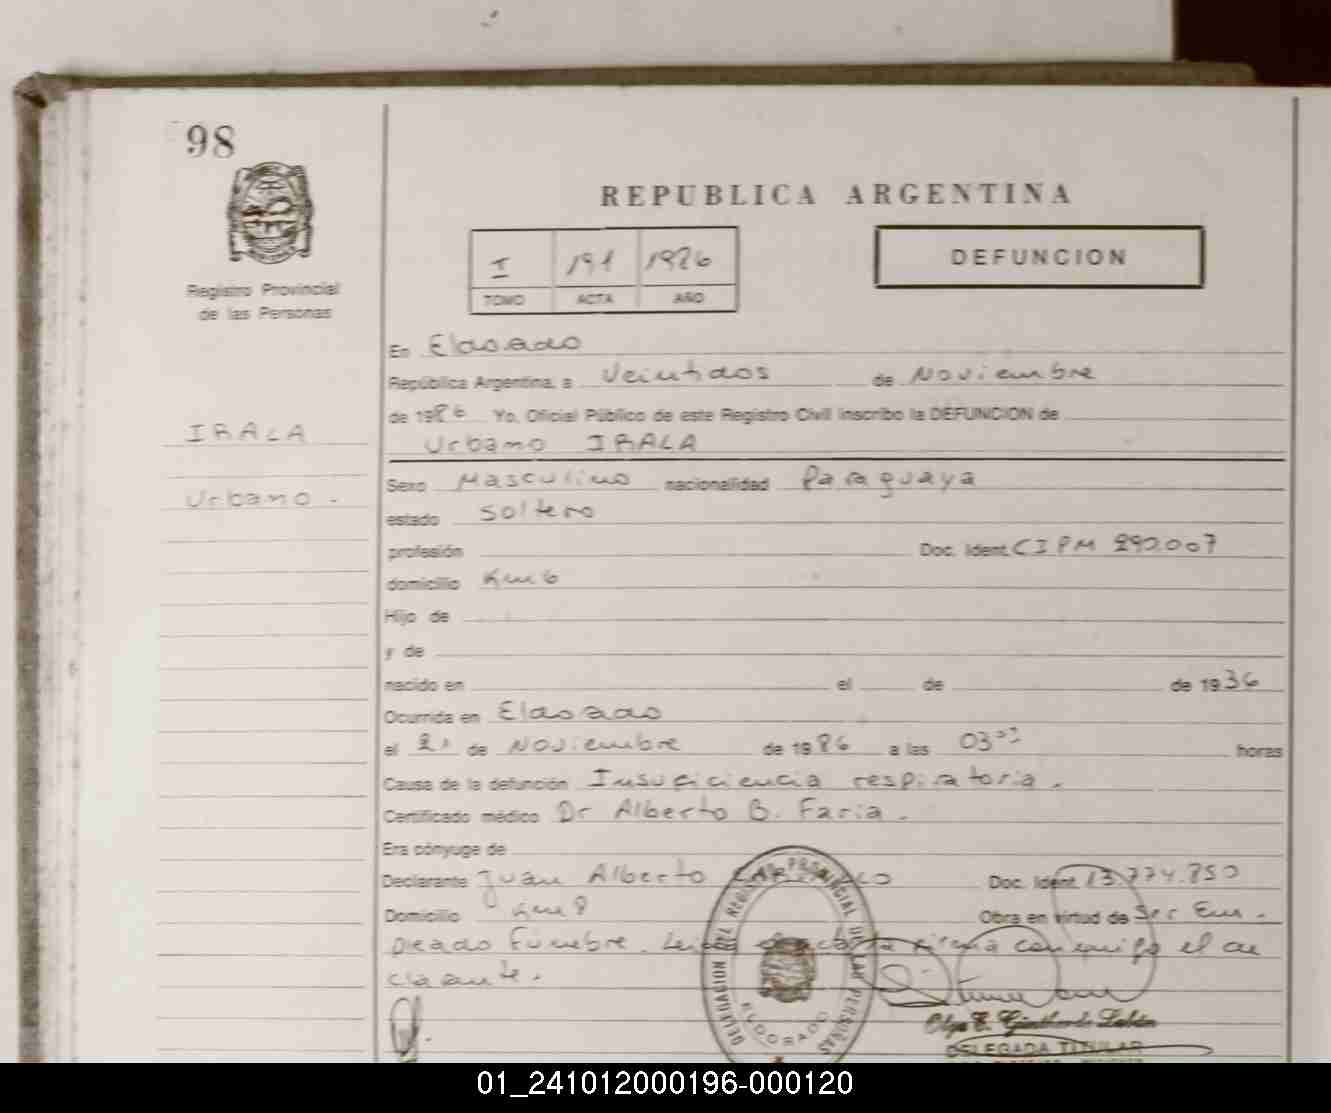 98
REPUBLICA ARGENTINA
I 191 1986
TOMO ACTA AÑO
DEFUNCION
Registro Provincial
de las Personas
En Eldorado
República Argentina, a Veintidos de Noviembre
de 1986 Yo, Oficial Público de este Registro Civil inscribo la DEFUNCION de
IRALA
Urbano IRALA
Sexo Masculino nacionalidad Paraguaya
Urbano.
estado Soltero
profesión Doc. Ident. CIPM 290.007
domicilio Km 6
Hijo de
y de
nacido en el de de 1936
Ocurrida en Eldorado
el de Noviembre de 1986 a las 03 horas
Causa de la defunción Insuficiencia respiratoria.
Certificado médico Dr Alberto B. Faria.
Era cónyuge de
Declarante Juan Alberto Doc. Ident. 13.774.850
Domicilio Km 8 Obra en virtud de Ser Em.
pleado Funebre. Leida el acta firma conmigo el de
clarante.
DELEGACION DEL REGISTRO PROVINCIAL DE LAS PERSONAS
ELDORADO
Olga E.
DELEGADA TITULAR
01_241012000196-000120